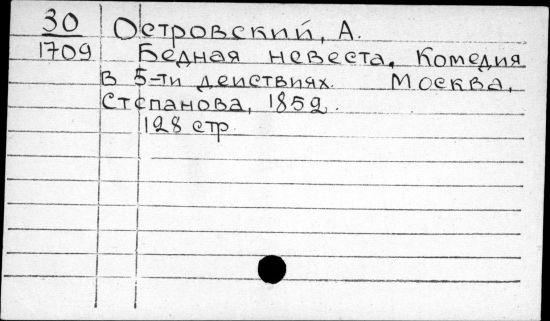 30 Островский, А.
1709 Бедная невеста. Комедия
в 5-ти действиях. Москва,
Степанова, 1852.
128 стр